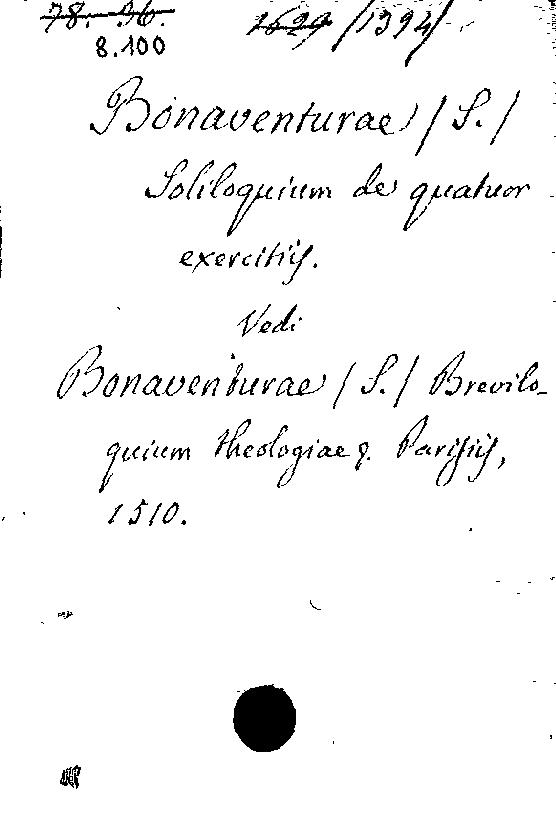 78. 36. 1629 /1394/
8.100
Bonaventurae /S./
Soliloquium de quatuor
exercitiis.
Vedi
Bonaventurae /S./ Brevilo-
quium theologiae &. Parisiis,
1510.